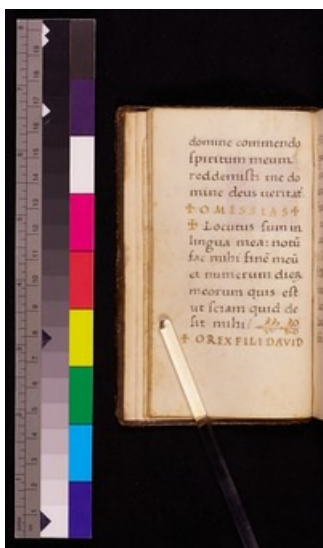 domine commendo
spiritum meum.
redemisti me do
mine deus ueritat̄.
✝ O MESSIAS ✝
✝ Locutus sum in
lingua mea: notū
fac mihi finē meū
et numerum dier̄
meorum quis est
ut sciam quid de
sit mihi/
✝ O REX FILI DAVID